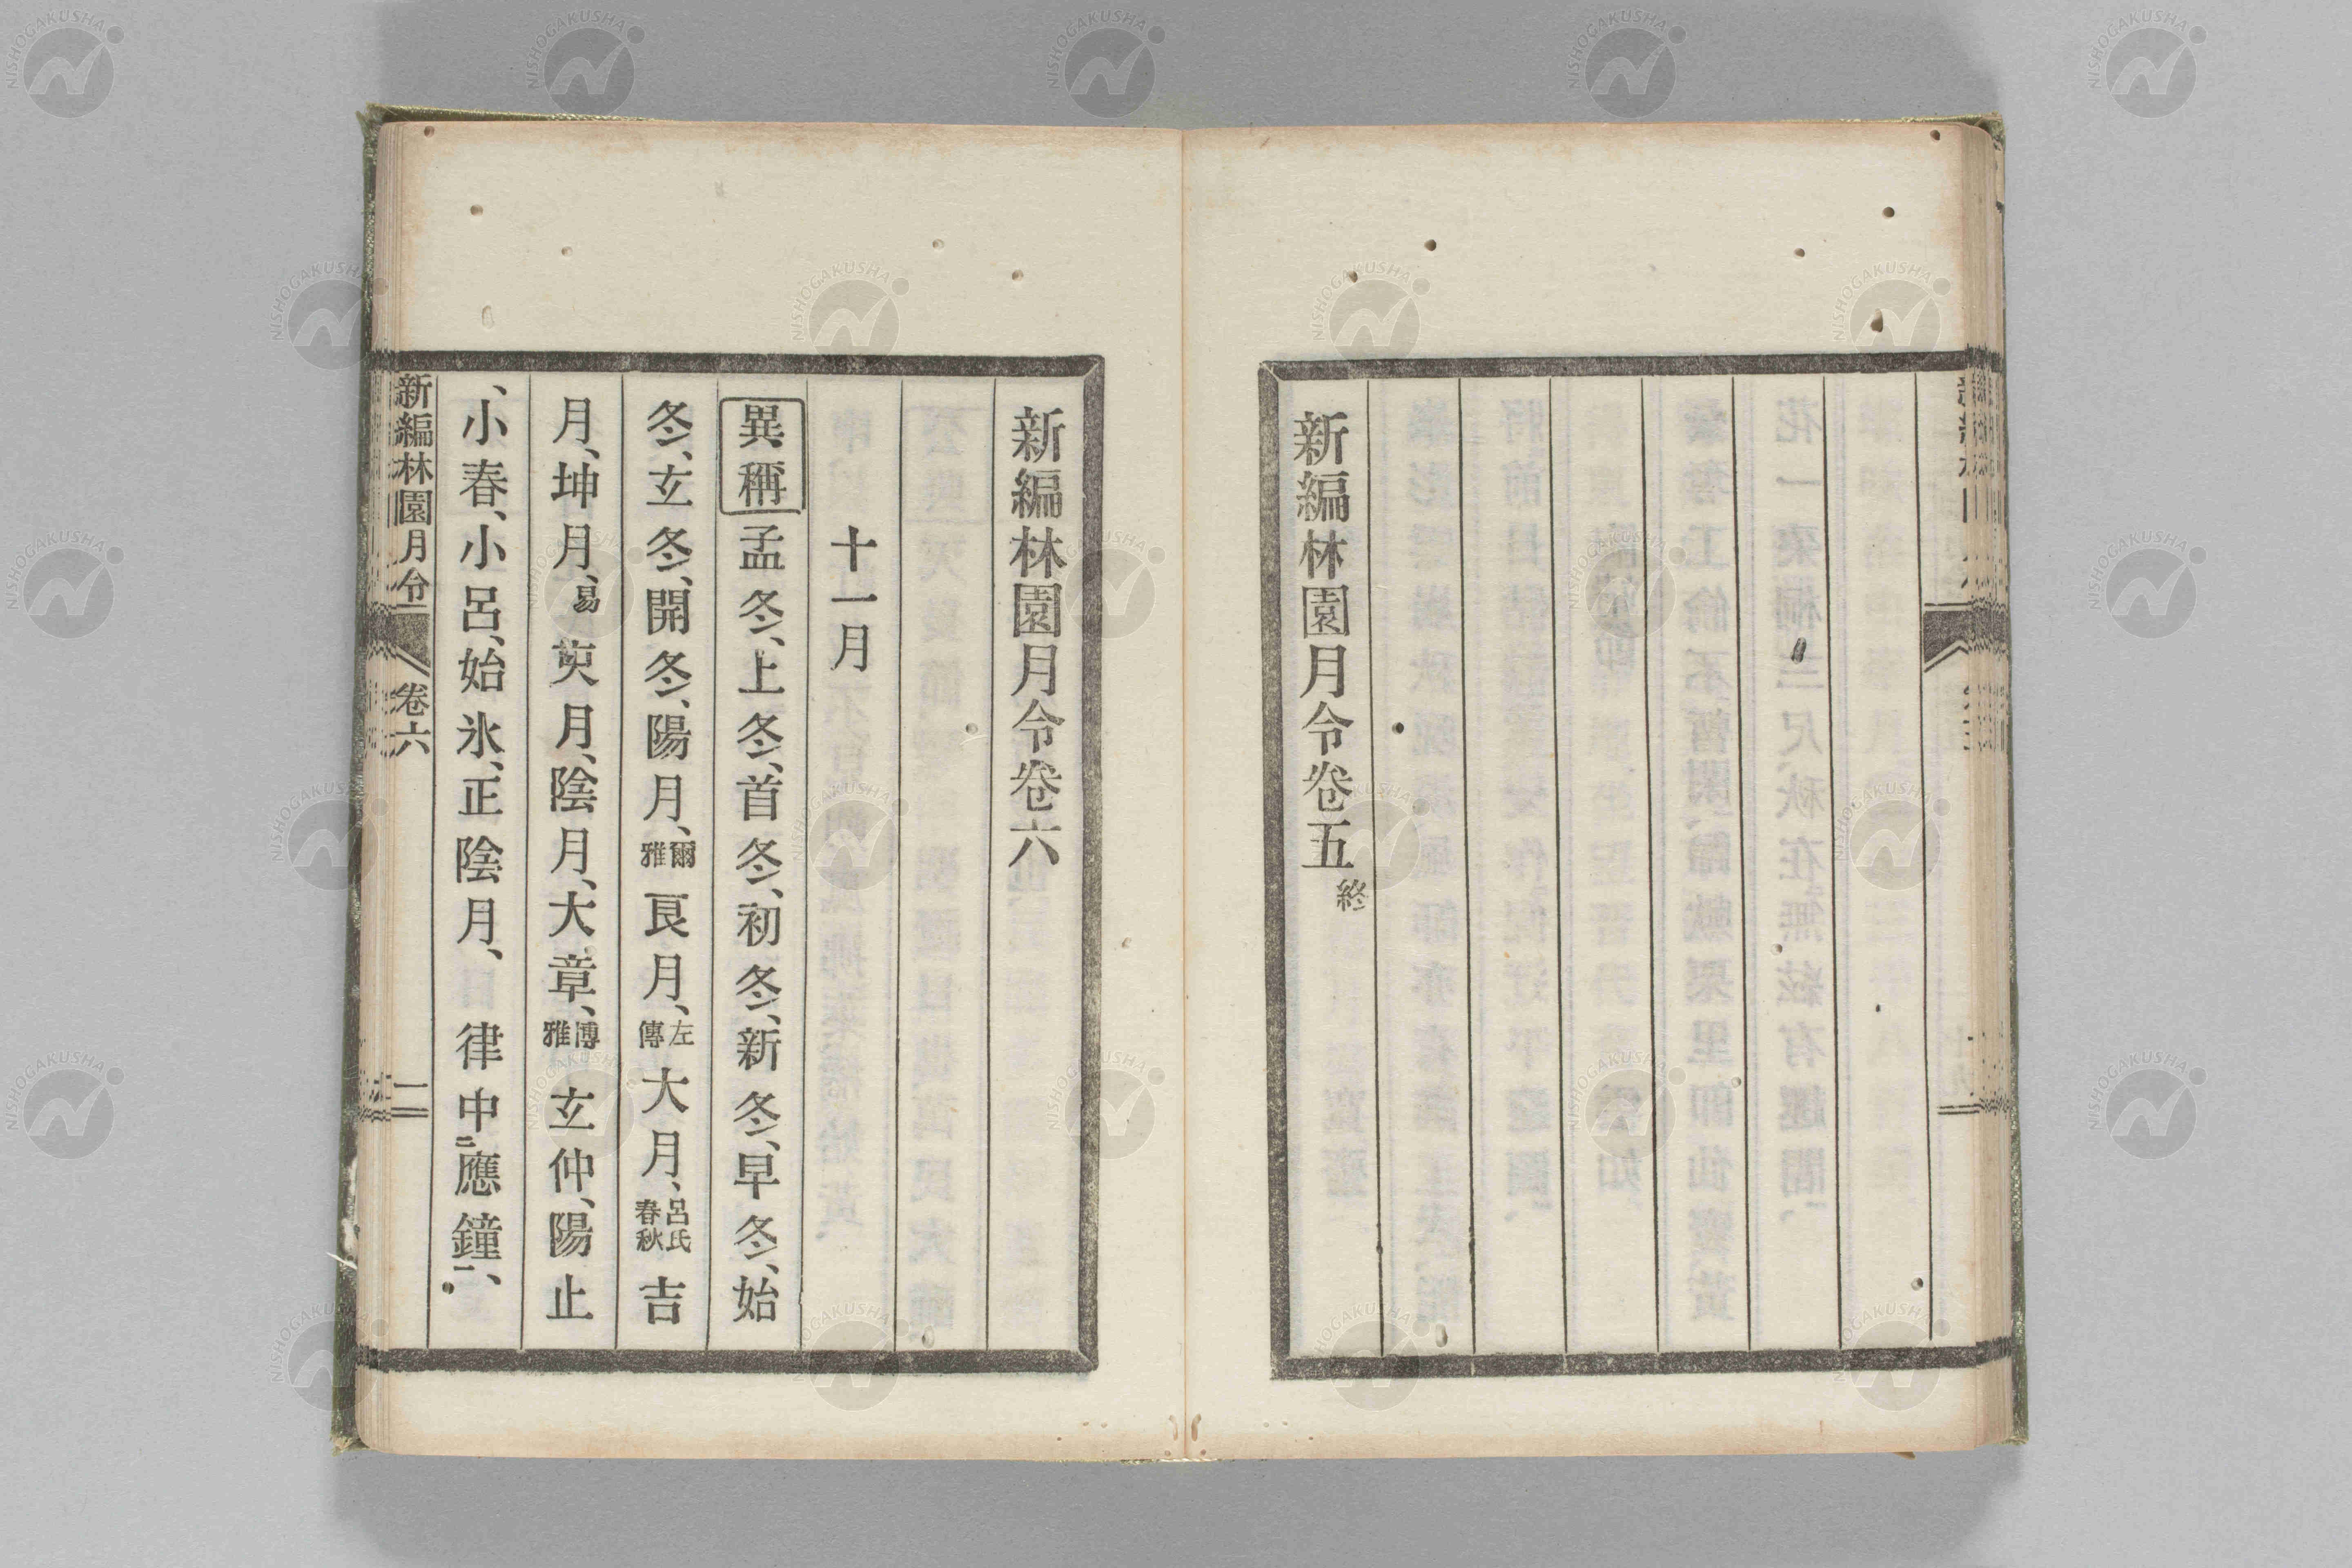 新編林園月令卷五終
新編林園月令卷六
十一月
異稱 孟冬、上冬、首冬、初冬、新冬、早冬、始
冬、玄冬、開冬、陽月、爾雅 良月、左傳 大月、呂氏春秋 吉
月、坤月、易 䒶月、陰月、大章、博雅 玄仲、陽止
、小春、小呂、始氷、正陰月、 律中二應鐘一、
新編林園月令 卷六 一
NISHOGAKUSHA